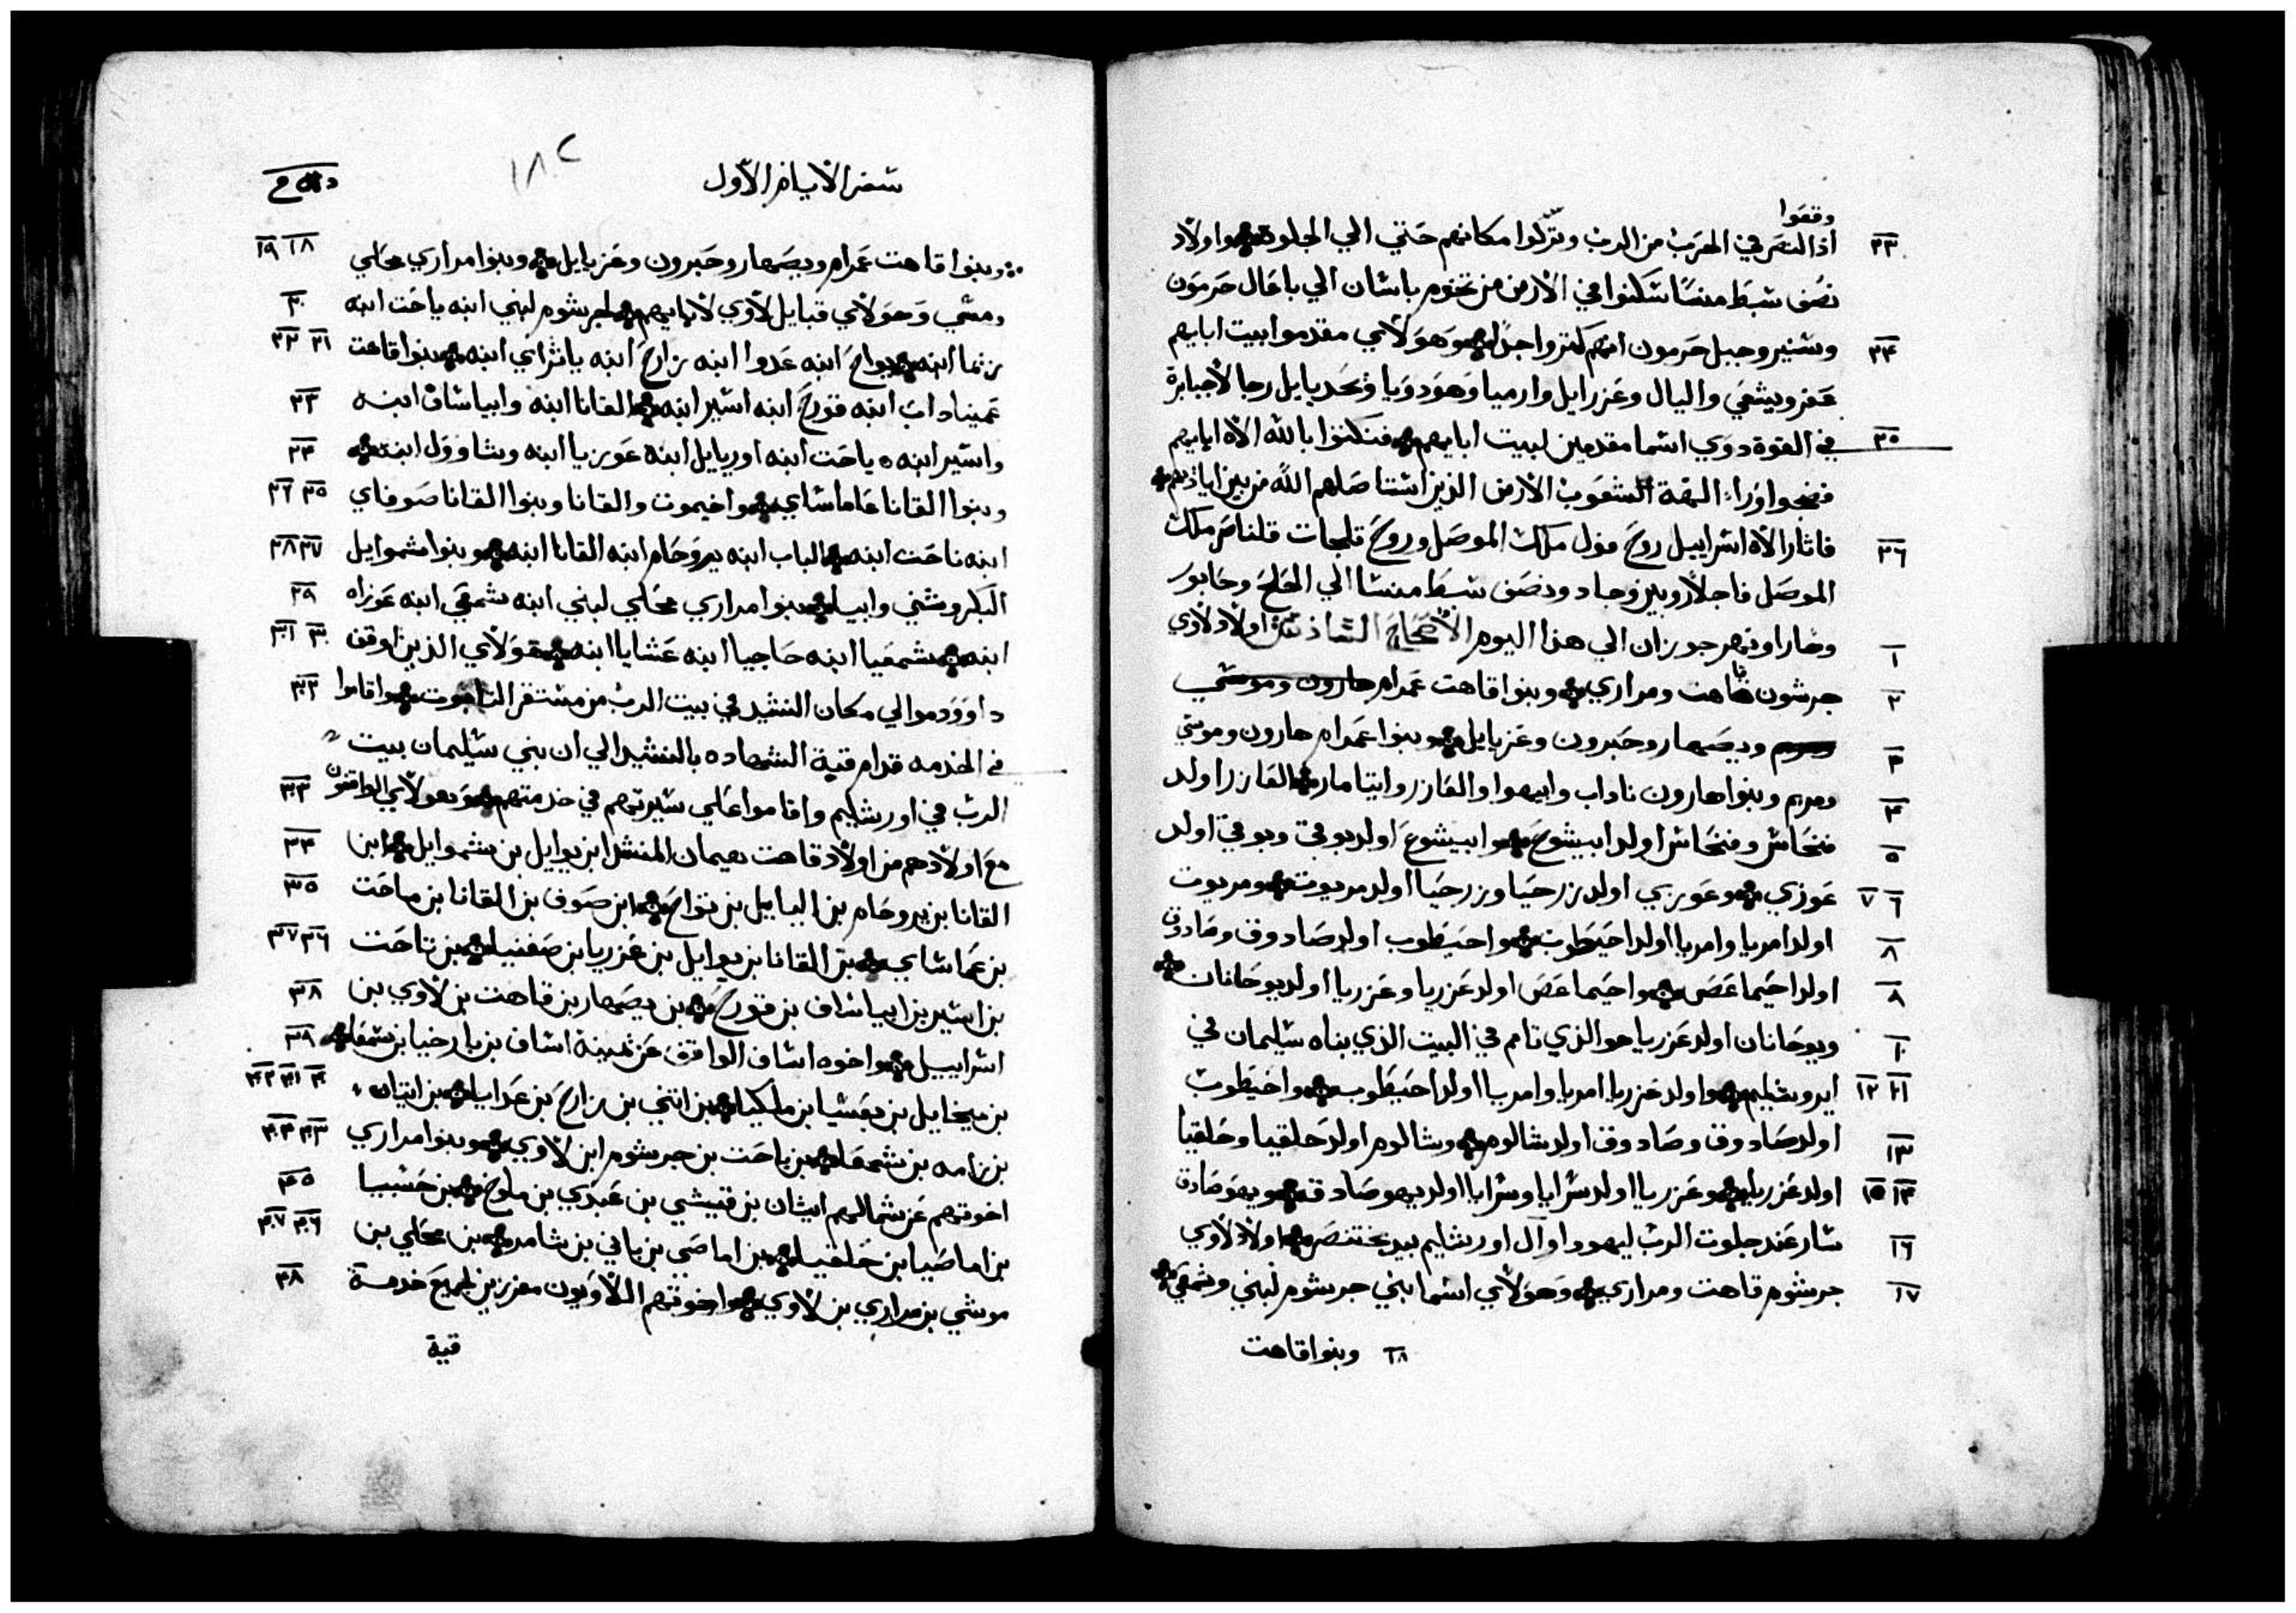 وقفوا
٢٣ اذ النصر في الحرب من الرب ونزلوا مكانهم حتي الي الجلوة واولاد
نصف سبط منسا سكنوا في الارض من تخوم باشان الي باعال حرمون
٢٤ وسنير وجبل حرمون انهم كثروا جدا وهولاي مقدموا بيت ابايهم
عفر ويشعي واليال وعزرايل وارميا وهودويا ويحديايل رجالا جبابرة
٢٥ في القوة دوي اسما مقدمين لبيت ابايهم فنكثوا بالله الاه ابايهم
فضجوا وراء الهة شعوب الارض الذين استاصلهم الله من بين اياديهم
٢٦ فاثار الاه اسراييل روح فول ملك الموصل وروح تلجات قلناصر ملك
الموصل فاجلا روبين وجاد ونصف سبط منسا الي الحلح وحابور
١ وهارا ونهر جوزان الي هذا اليوم الاصحاح السادس اولاد لاوي
٢ جرشون قاهت ومراري وبنوا قاهت عمرام هارون وموسي
٣ ويصهار وحبرون وعزيايل وبنوا عمرام هارون وموسي
٤ ومريم وبنوا هارون ناداب وابيهوا والعازر وايتامار العازر اولد
٥ فنحاس وفنحاس اولد ابيشوع وابيشوع اولد بوقي وبوقي اولد
٦ ٧ عوزي وعوزي اولد زرحيا وزرحيا اولد مريوت ومريوت
٨ اولد امريا وامريا اولد احيطوب واحيطوب اولد صادوق وصادوق
٨ اولد احيماعص واحيماعص اولد عزريا وعزريا اولد يوحانان
١٠ ويوحانان اولد عزريا هو الذي تامم في البيت الذي بناه سليمان في
١١ ١٢ ايروشليم واولد عزريا امريا وامريا اولد احيطوب واحيطوب
١٣ اولد صادوق وصادوق اولد شالوم وشالوم اولد حلقيا وحلقيا
١٤ ١٥ اولد عزريا وعزريا اولد سرايا وسرايا اولد يهوصادق ويهوصادق
١٦ سار عند جلوت الرب ليهودا وال اورشليم بيد بختنصر اولاد لاوي
١٧ جرشوم قاهت ومراري وهولاي اسما بني جرشوم لبني وشمعي
١٨ وبنوا قاهت
سفر الايام الاول
١٨٢
١٨ ١٩ وبنوا قاهت عمرام ويصهار وحبرون وعزيايل وبنوا مراري محلي
٢٠ ومشي وهولاي قبايل لاوي لابايهم لجرشوم لبني ابنه ياحت ابنه
٢١ ٢٢ زثما ابنه يواح ابنه عدوا ابنه زارح ابنه ياثراي ابنه بنوا قاهت
٢٣ عميناداب ابنه قورح ابنه اسير ابنه القانا ابنه وابياساف ابنه
٢٤ واسير ابنه ياحت ابنه اوريايل ابنه عوزيا ابنه وشاوول ابنه
٢٥ ٢٦ وبنوا القانا عاماساي واخيموت والقانا وبنوا القانا صوفاي
٢٧ ٢٨ ابنه ناحت ابنه الياب ابنه يروحام ابنه القانا ابنه وبنوا شموايل
٢٩ البكر وشني وابيا بنوا مراري محلي لبني ابنه شمعي ابنه عوزاه
٣٠ ٣١ ابنه شمعيا ابنه حاجيا ابنه عشايا ابنه هولاي الذين اوقف
٣٢ داوود موالي مكان النشيد في بيت الرب من مستقر التابوت واقاموا
في الخدمه قدام قبة الشهاده بالنشيد الي ان بني سليمان بيت
٣٣ الرب في اورشليم واقاموا علي سيرتهم في خدمتهم وهولاي الواقفون
٣٤ مع اولادهم من اولاد قاهت هيمان المنشد ابن يواييل بن شموايل ابن
٣٥ القانا بن يروحام بن الياييل بن تواح ابن صوف بن القانا بن ماحت
٣٦ ٣٧ بن عماساي بن القانا بن يوايل بن عزريا بن صفنيا بن تاحت
٣٨ بن اسير بن ابياساف بن قورح بن يصهار بن قاهت بن لاوي بن
٣٩ اسراييل واخوه اساف الواقف عن يمينه اساف بن بارخيا بن شمعا
٤٠ ٤١ ٤٢ بن ميخاييل بن بعسيا بن ملكيا بن اتني بن زارح بن عدايا بن ايتان
٤٣ ٤٤ بن زامه بن شمعا بن ياحت بن جرشوم ابن لاوي وبنوا مراري
٤٥ اخوتهم عن شمالهم ايثان بن قيشي بن عبدي بن ملوخ بن حشبيا
٤٦ ٤٧ بن اماصيا بن حلقيا بن اماصي بن باني بن شامر بن محلي بن
٤٨ موشي بن مراري بن لاوي واخوتهم اللاويون مفرزين لجميع خدمة
قبة